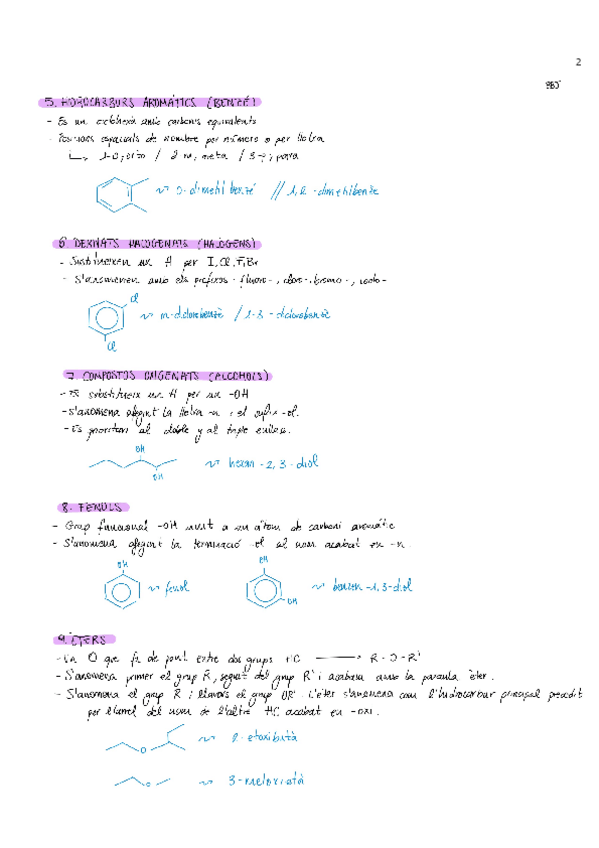 2
5. HIDROCARBURS AROMÀTICS (BENZÈ)
- És un ciclohexà amb carbonis equivalents
de nombre per número o per lletra
1-o, orto / 2 m, meta / 3-p, para
o-dimetil benzè // 1,2-dimetilbenzè
6 DERIVATS HALOGENATS (HALÒGENS)
- Substitueixen un H per I, Cl, F, Br
- S'anomenen amb els prefixos - fluoro-, cloro-, bromo-, iodo-
Cl
Cl
m-diclorobenzè / 1-3-diclorobenzè
7 COMPOSTOS OXIGENATS (ALCOHOLS)
- Es substitueix un H per un -OH
- S'anomena afegint la lletra -n i el sufix -ol.
- És prioritari al doble y al triple enllaç.
OH
OH
hexan-2,3-diol
8. FENOLS
- Grup funcional -OH unit a un àtom de carboni aromàtic
- S'anomena afegint la terminació -ol al nom acabat en -n.
OH
fenol
OH
OH
benzen-1,3-diol
9. ÈTERS
- Un O que fa de pont entre dos grups HC → R-O-R'
- S'anomena primer el grup R, seguit del grup R' i acabesa amb la paraula èter.
- S'anomena el grup R i llavors el grup OR'. L'èter s'anomena com l'hidrocarbur principal precedit
per l'arrel del nom de l'altre HC acabat en -oxi.
O
2-etoxibutà
O
3-metoxietà